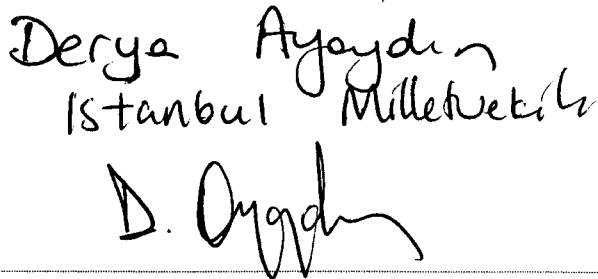 Derya Ayaydın
Istanbul Milletvekili
D. Ayaydın